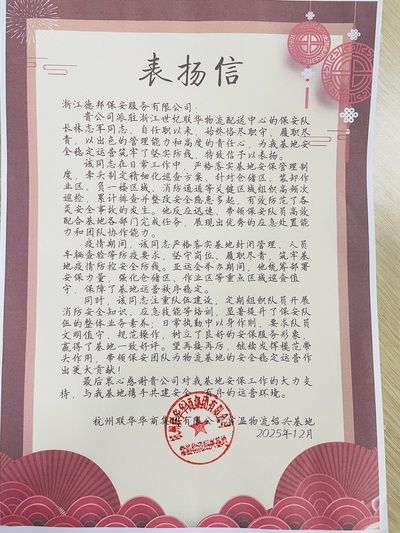 表扬信
浙江德邦保安服务有限公司:
贵公司派驻浙江世纪联华物流配送中心的保安队
长林志军同志,自任职以来,始终恪尽职守、履职尽
责,以出色的管理能力和高度的责任心,为我基地安
全稳定运营筑牢了坚实防线,特致信予以表扬。
该同志在日常工作中,严格落实基地安保管理制
度,牵头制定精细化巡查方案,针对仓储区、装卸作
业区、负一楼区域、消防通道等关键区域组织高频次
巡检,累计排查并整改安全隐患多起,有效防范了各
类安全事故的发生。他反应迅速、带领保安队员高效
配合基地各部门完成任务,展现出优秀的应急处置能
力和团队协作能力。
疫情期间,该同志严格落实基地封闭管理、人员
车辆查验等防疫要求,坚守岗位、履职尽责,筑牢基
地疫情防控安全防线。亚运会举办期间,他统筹部署
安保力量,强化仓储区、作业区等重点区域巡查值
守,保障了基地运营秩序稳定。
同时,该同志注重队伍建设,定期组织队员开展
消防安全知识、应急技能等培训,显著提升了保安队
伍的整体业务素养,日常执勤中以身作则,要求队员
文明值守、规范操作,树立了良好的安保服务形象,
赢得了基地一致好评。望再接再厉,继续发挥模范带
头作用,带领保安团队为物流基地的安全稳定运营作
出更大贡献!
最后衷心感谢贵公司对我基地安保工作的大力支
持,与我基地携手共建安全、有序的运营环境。
杭州联华华商集团有限公司常温物流绍兴基地
2025年12月